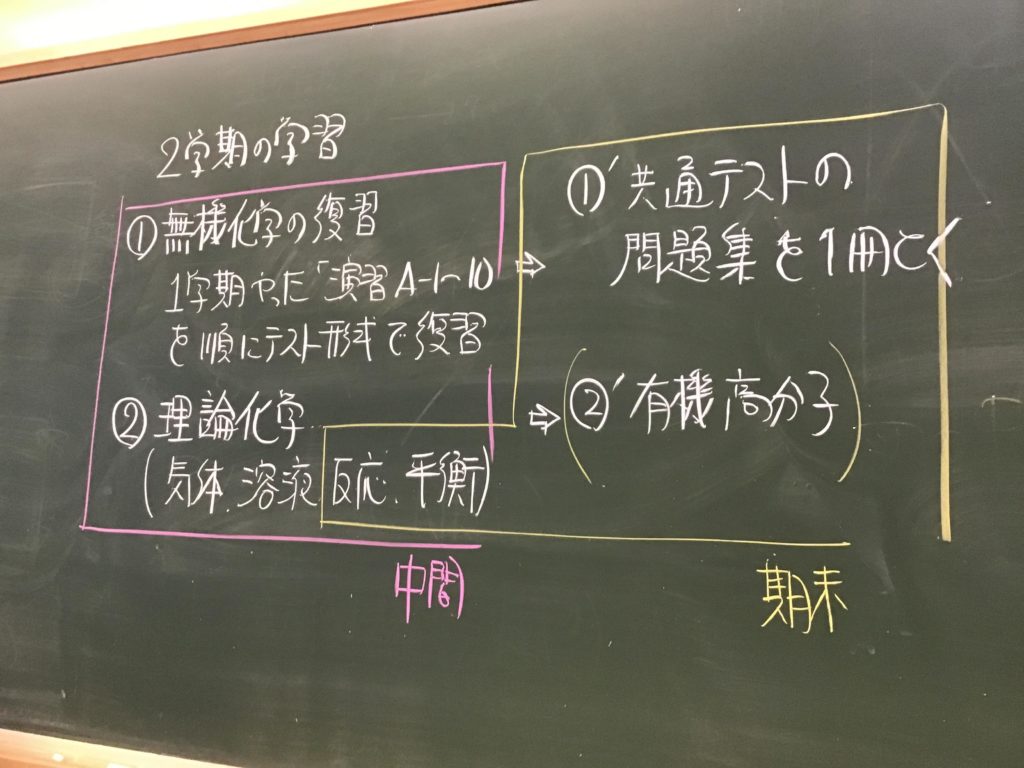 2学期の学習
① 無機化学の復習
1学期やった「演習A-1~10
を順にテスト形式で復習
② 理論化学
(気体、溶液 反応、平衡)
中間
⇨ ①' 共通テストの
問題集を1冊とく
⇨ (②' 有機高分子)
期末